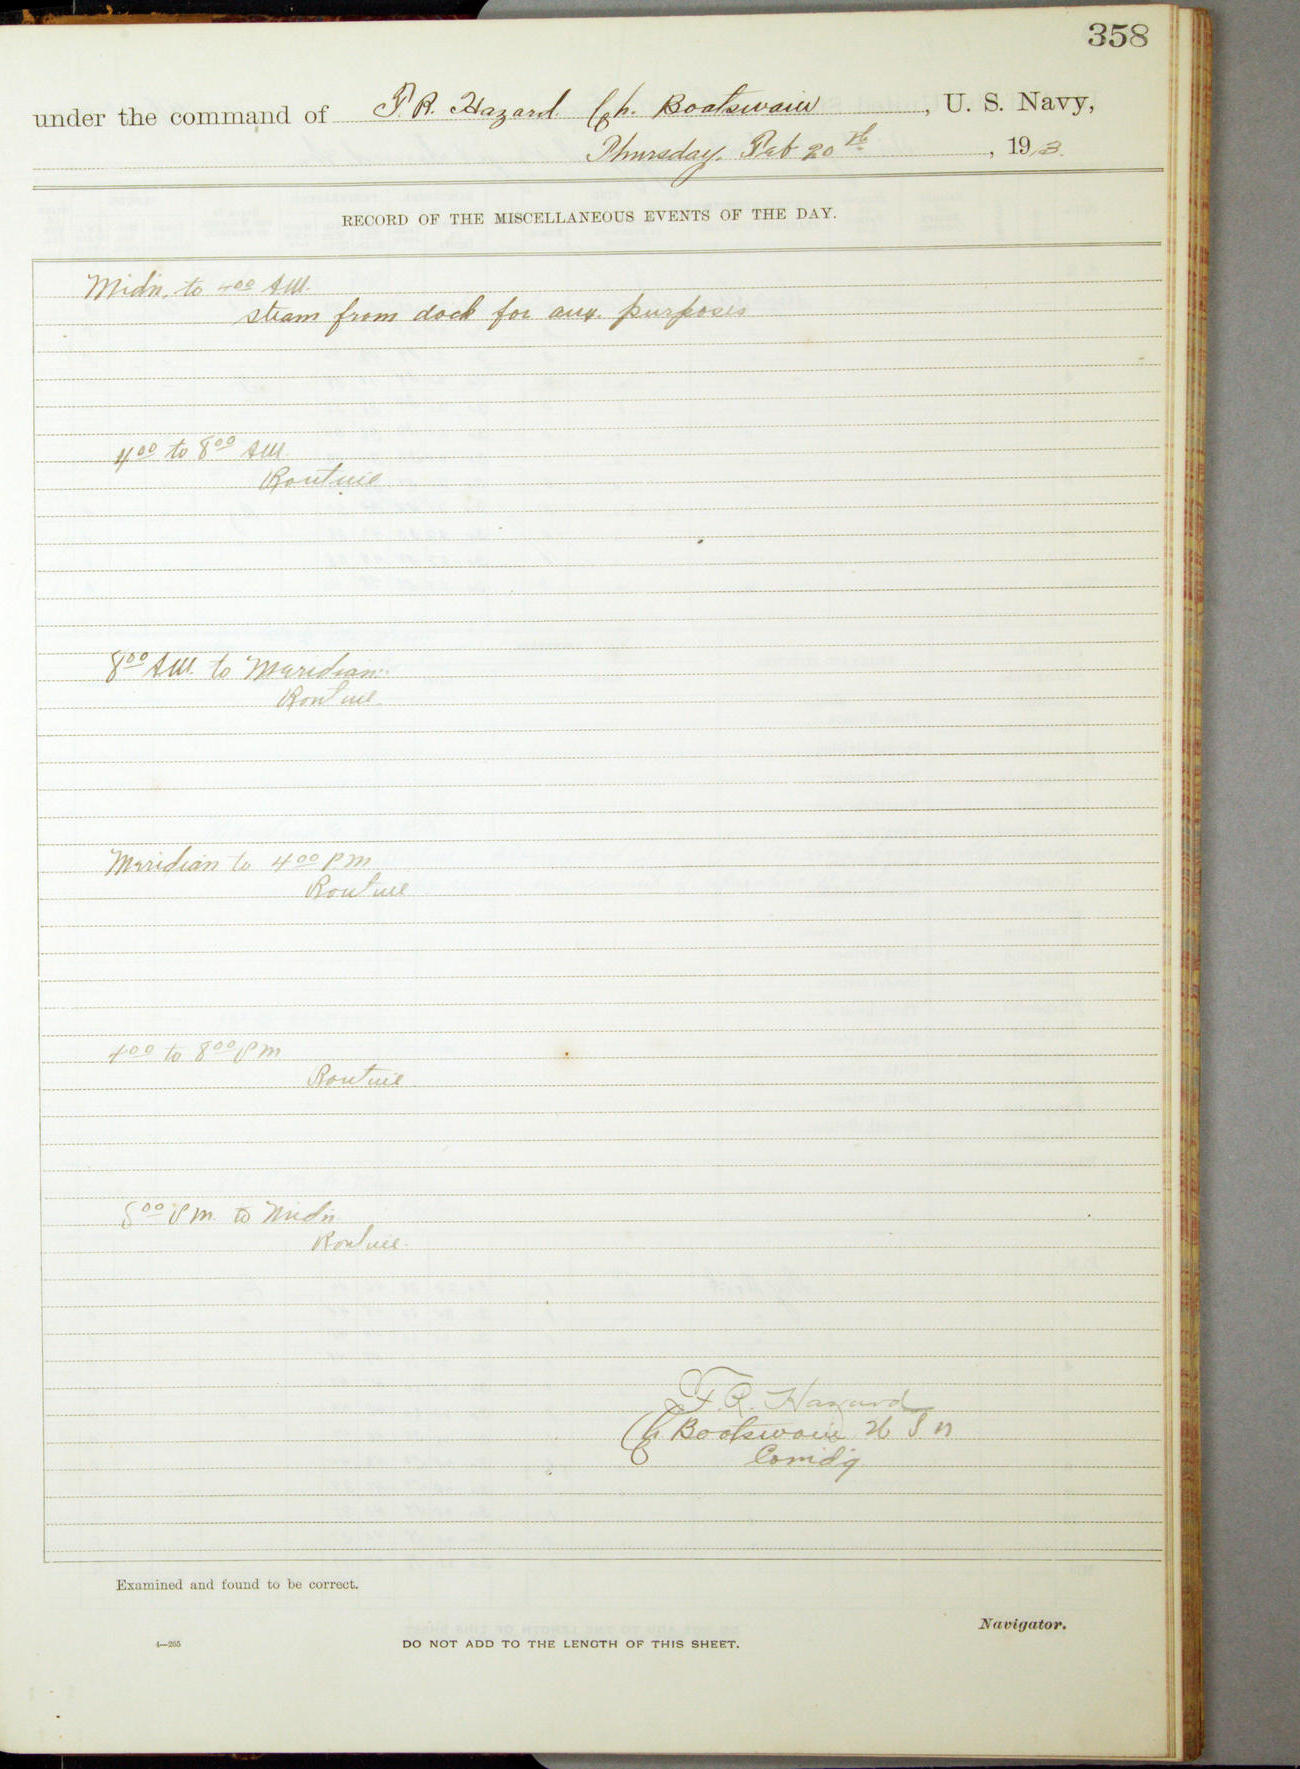 358
under the command of F. R. Hazard Ch. Boatswain, U. S. Navy,
Thursday. Feb 20th, 1913.
RECORD OF THE MISCELLANEOUS EVENTS OF THE DAY.
Midn. to 4 00 AM.
steam from dock for aux. purposes
4 00 to 8 00 AM.
Routine
8 00 AM. to Meridian.
Routine
Meridian to 4 00 PM
Routine
4 00 to 8 00 PM
Routine
8 00 PM. to Midn.
Routine
F. R. Hazard
Ch Boatswain U S N
Comdg
Examined and found to be correct.
Navigator.
4—265
DO NOT ADD TO THE LENGTH OF THIS SHEET.